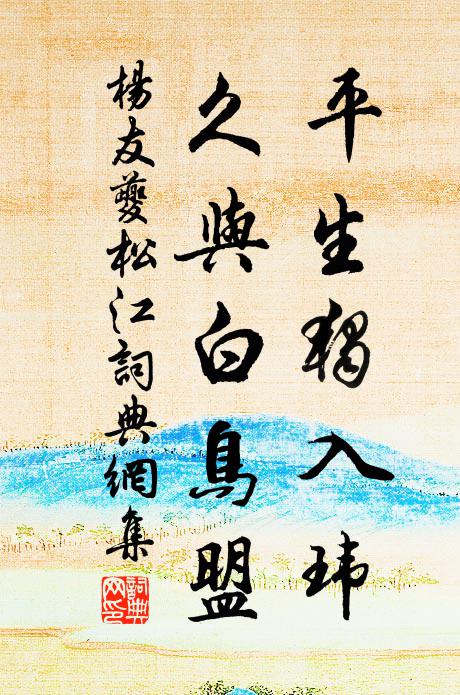 平生獨入瑋
久與白鳥盟
楊友夔松江詞典網集
詞典網印